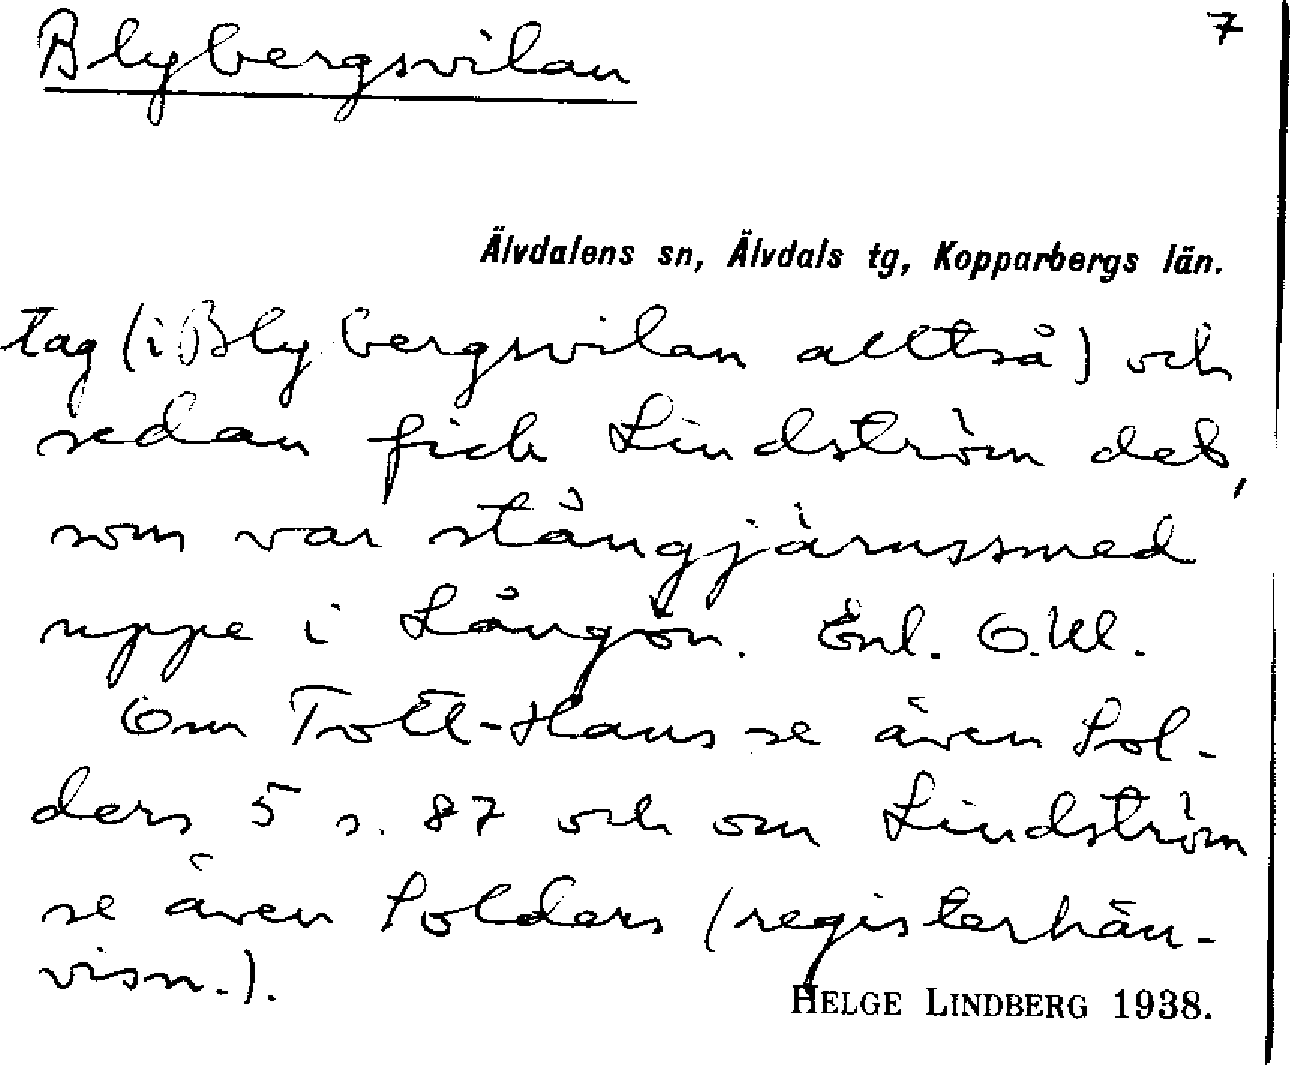 Blybergsvilan 7
Älvdalens sn, Älvdals tg, Kopparbergs län.
tag (i Blybergsvilan alltså) och
sedan fick Lindström det,
som var stångjärnssmed
uppe i Långön. Enl. O.Ul.
Om Toll-Hans se även Sol-
ders 5 s. 87 och om Lindström
se även Solders (registerhän-
visn.).
HELGE LINDBERG 1938.